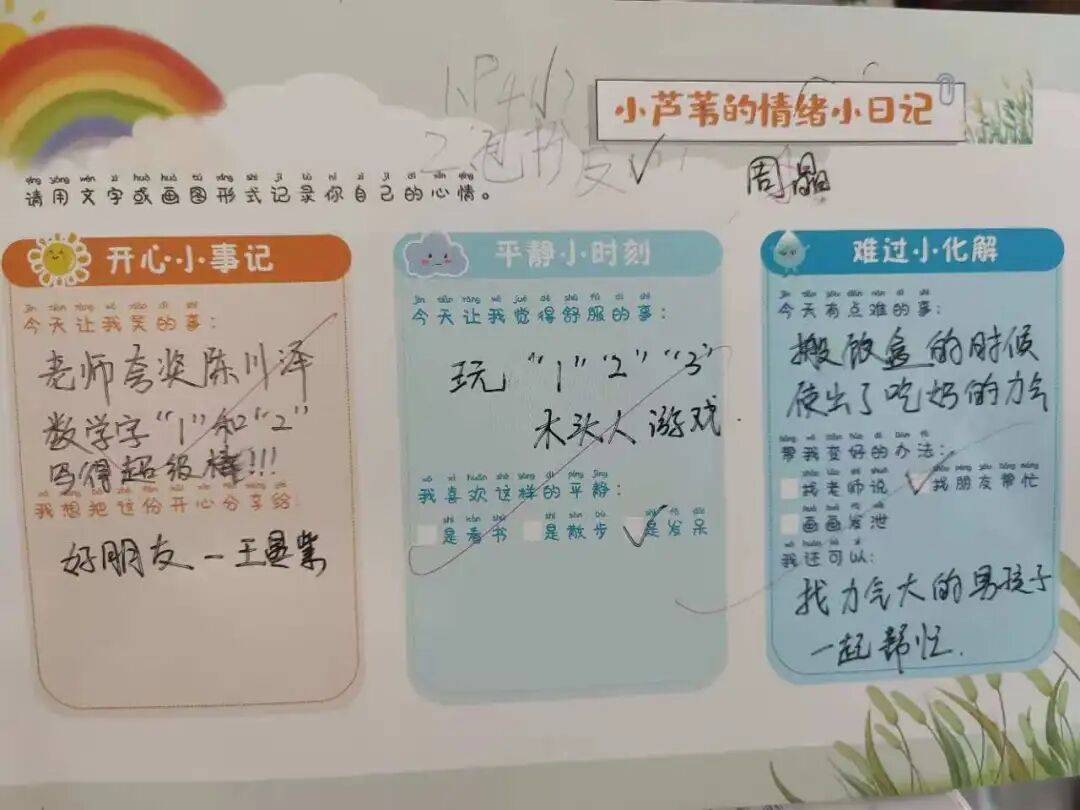 小芦苇的情绪小日记
周晶
qǐng yòng wén zì huò huà tú xíng shì jì lù nǐ zì jǐ de xīn qíng
请用文字或画图形式记录你自己的心情。
开心小事记
jīn tiān ràng wǒ xiào de shì
今天让我笑的事：
老师夸奖陈川泽
数学字“1”和“2”
写得超级棒!!!
我想把这份开心分享给：
好朋友 — 王
平静小时刻
jīn tiān ràng wǒ jué de shū fú de shì
今天让我觉得舒服的事：
玩“1”“2”“3”
木头人游戏.
wǒ xǐ huān zhè yàng de píng jìng
我喜欢这样的平静：
shì kàn shū shì sàn bù shì fā dāi
是看书 是散步 是发呆
难过小化解
jīn tiān yǒu diǎn nán de shì
今天有点难的事：
搬饭盒的时候
使出了吃奶的力气
bāng wǒ biàn hǎo de bàn fǎ
帮我变好的办法：
找老师说 找朋友帮忙
画画发泄
wǒ hái kě yǐ
我还可以：
找力气大的男孩子
一起帮忙.